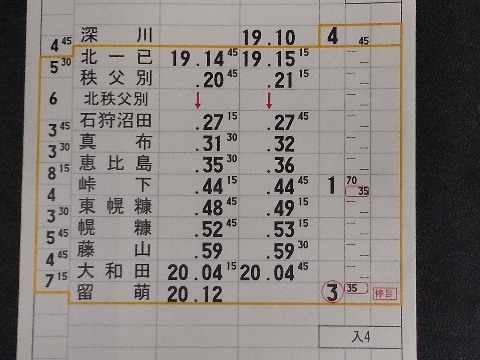 深川 19.10 4 45
4 45
北一已 19.14 45 19.15 15
5 30
秩父別 .20 45 .21 15
6
北秩父別 ↓ ↓
石狩沼田 .27 15 .27 45
3 45
真布 .31 30 .32
3 30
恵比島 .35 30 .36
8 15
峠下 .44 15 .44 45 1 70 35
4
東幌糠 .48 45 .49 15
3 30
幌糠 .52 45 .53 15
5 45
藤山 .59 .59 30
4 45
大和田 20.04 15 20.04 45
7 15
留萌 20.12 3 35 停目
入4